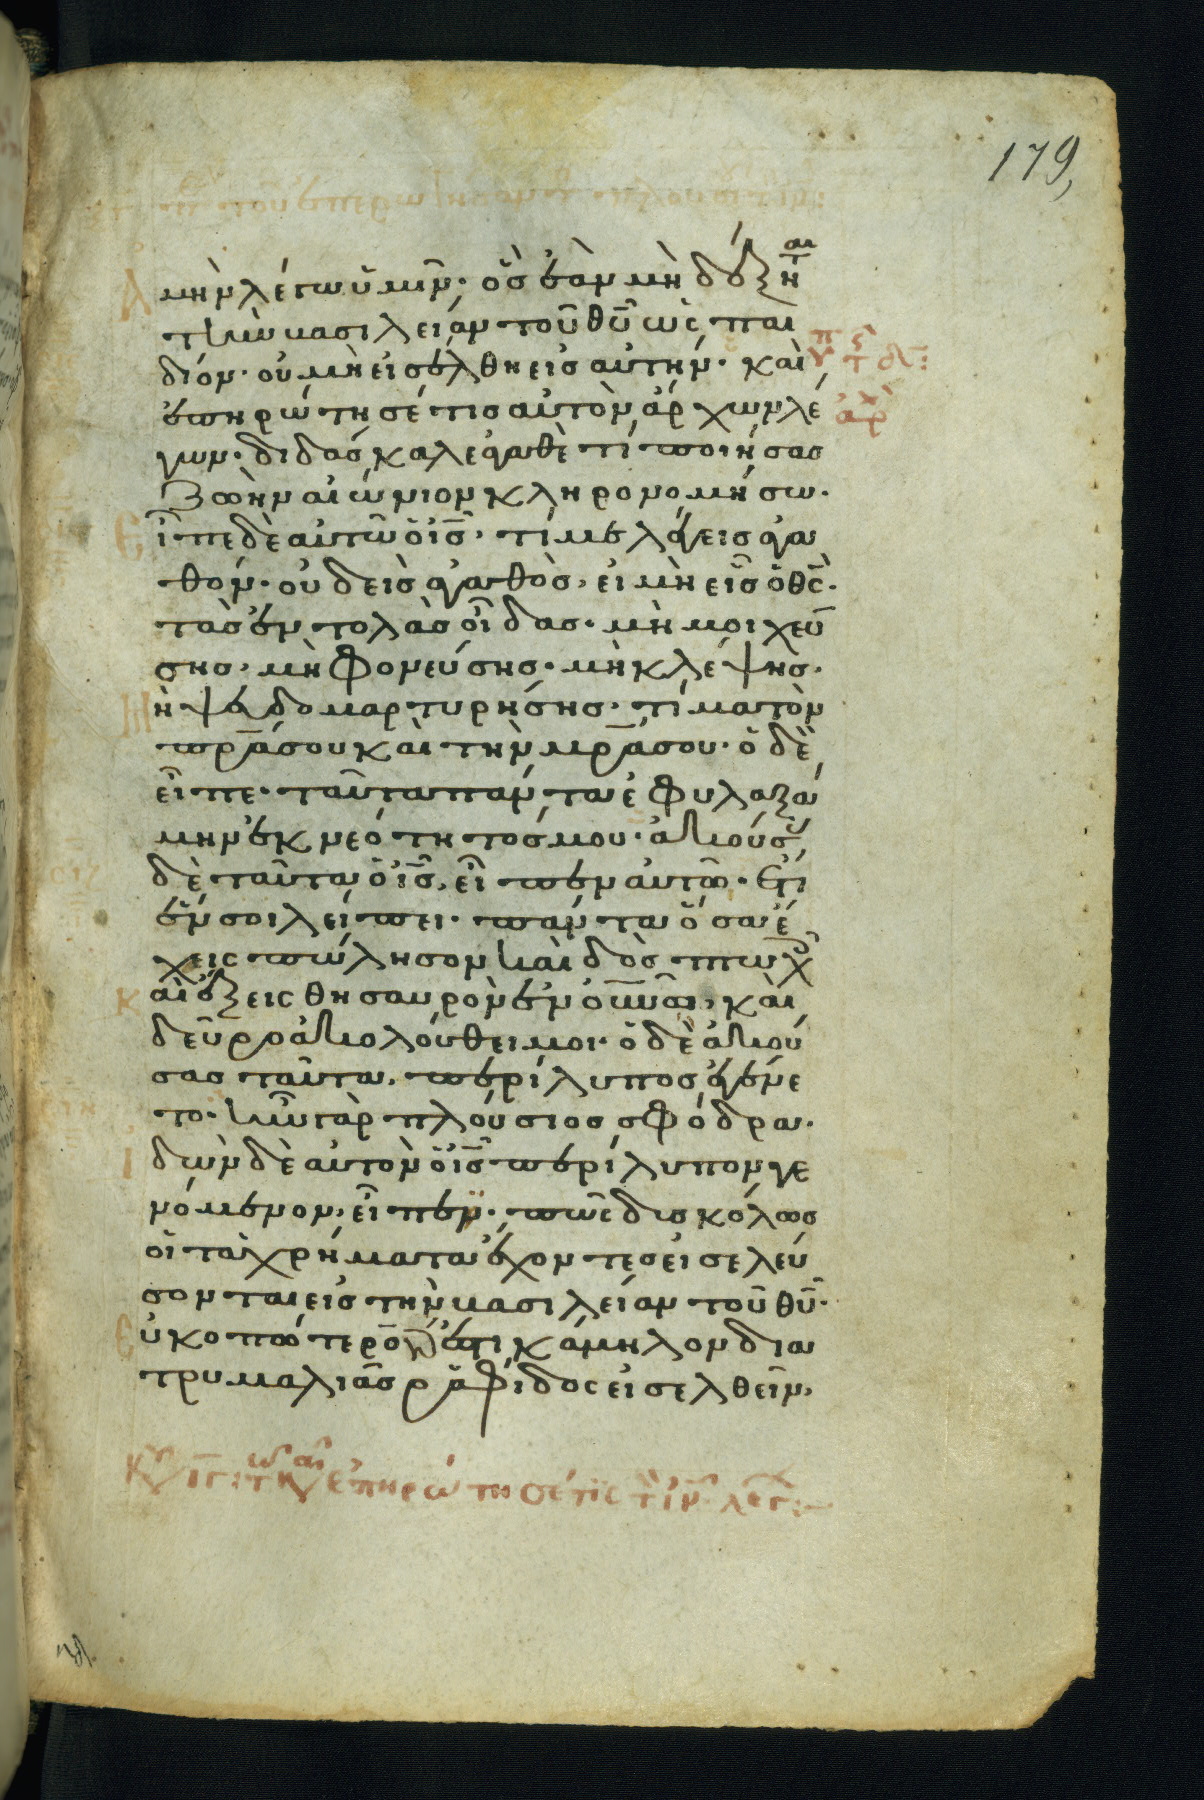 179
ἀμὴν λέγω ὑμῖν· ὃς ἐὰν μὴ δέξηται
τὴν βασιλείαν τοῦ θῦ ὡς παι
δίον· οὐ μὴ εἰσέλθη εἰς αὐτήν· καὶ
ἐπηρώτησέ τις αὐτὸν ἄρχων λέ
γων· διδάσκαλε ἀγαθὲ τί ποιήσας
ζωὴν αἰώνιον κληρονομήσω·
Εἶπε δὲ αὐτῶ ὁ ις· τί με λέγεις ἀγα
θόν· οὐδεὶς ἀγαθὸς, εἰ μὴ εἷς ὁ θς·
τὰς ἐντολὰς οἶδας· μὴ μοιχεύ
σης· μὴ φονεύσης· μὴ κλέψης·
Μὴ ψευδομαρτυρήσης· τίμα τὸν
πρα σου καὶ τὴν μρα σου· ὁ δὲ
εἶπε· ταῦτα πάντα ἐφυλαξά
μην ἐκ νεότητός μου· ἀκούσας
δὲ ταῦτα ὁ ις, εἶπεν αὐτῶ· ἔτι
ἕν σοι λείπει· πάντα ὅσα ἔ
χεις πώλησον καὶ δὸς πτωχοῖς
καὶ ἕξεις θησαυρὸν ἐν οὐνω, καὶ
δεῦρο ἀκολούθει μοι· ὁ δὲ ἀκού
σας ταῦτα, περίλυπος ἐγένε
το· ἦν γὰρ πλούσιος σφόδρα·
Ἰδὼν δὲ αὐτὸν ὁ ις περίλυπον γε
νόμενον, εἶπεν· πῶς δισκόλως
οἱ τὰ χρήματα ἔχοντες εἰσελεύ
σονται εἰς τὴν βασιλείαν τοῦ θυ·
Εὐκοπώτερον γάρ ἐστι κάμηλον δια
τρυμαλιᾶς ῥαφίδος εἰσελθεῖν,
ἐπηρώτησέ τις τὸν ιν λεγ: